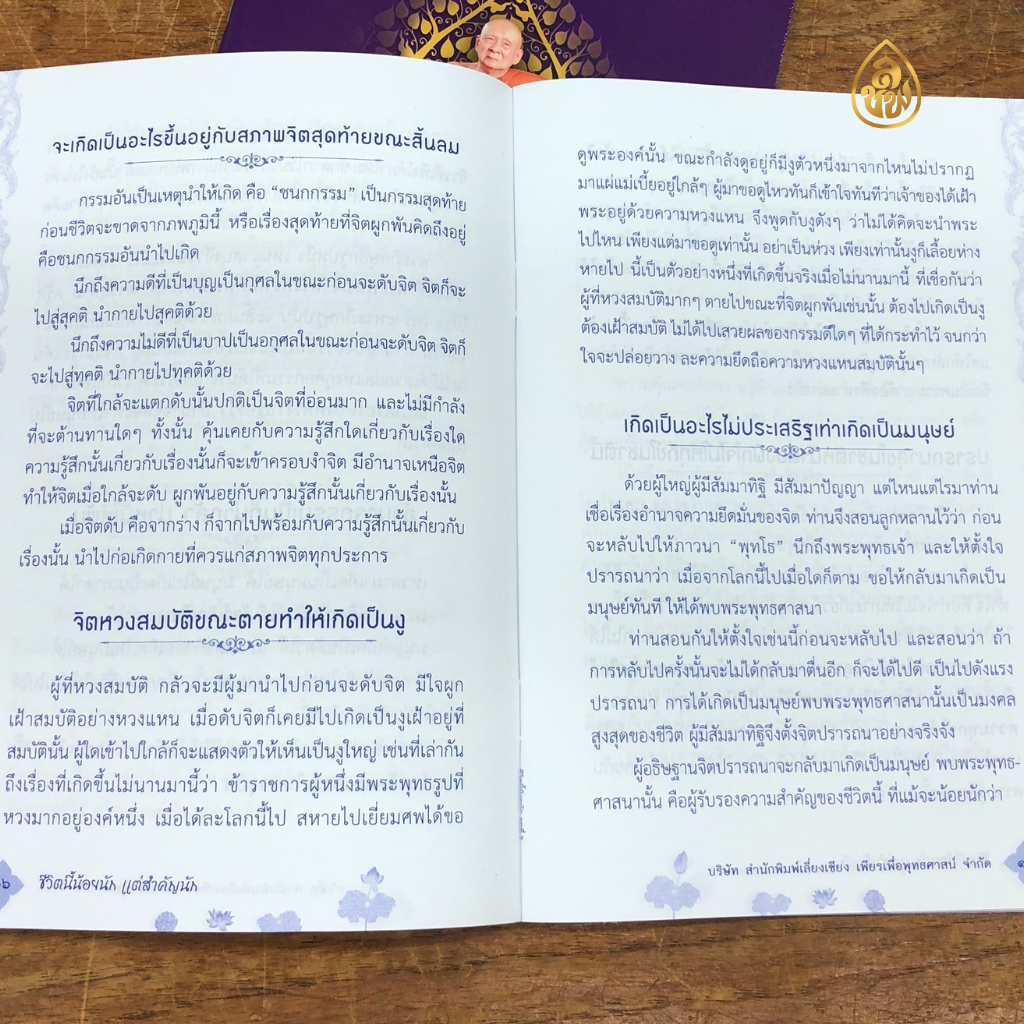 จะเกิดเป็นอะไรขึ้นอยู่กับสภาพจิตสุดท้ายขณะสิ้นลม
กรรมอันเป็นเหตุนำให้เกิด คือ “ชนกกรรม” เป็นกรรมสุดท้าย
ก่อนชีวิตจะขาดจากภพภูมินี้ หรือเรื่องสุดท้ายที่จิตผูกพันคิดถึงอยู่
คือชนกกรรมอันนำไปเกิด
นึกถึงความดีที่เป็นบุญเป็นกุศลในขณะก่อนจะดับจิต จิตก็จะ
ไปสู่สุคติ นำกายไปสุคติด้วย
นึกถึงความไม่ดีที่เป็นบาปเป็นอกุศลในขณะก่อนจะดับจิต จิตก็
จะไปสู่ทุคติ นำกายไปทุคติด้วย
จิตที่ใกล้จะแตกดับนั้นปกติเป็นจิตที่อ่อนมาก และไม่มีกำลัง
ที่จะต้านทานใดๆ ทั้งนั้น คุ้นเคยกับความรู้สึกใดเกี่ยวกับเรื่องใด
ความรู้สึกนั้นเกี่ยวกับเรื่องนั้นก็จะเข้าครอบงำจิต มีอำนาจเหนือจิต
ทำให้จิตเมื่อใกล้จะดับ ผูกพันอยู่กับความรู้สึกนั้นเกี่ยวกับเรื่องนั้น
เมื่อจิตดับ คือจากร่าง ก็จากไปพร้อมกับความรู้สึกนั้นเกี่ยวกับ
เรื่องนั้น นำไปก่อเกิดกายที่ควรแก่สภาพจิตทุกประการ
จิตหวงสมบัติขณะตายทำให้เกิดเป็นงู
ผู้ที่หวงสมบัติ กลัวจะมีผู้มานำไปก่อนจะดับจิต มีใจผูก
เฝ้าสมบัติอย่างหวงแหน เมื่อดับจิตก็เคยมีไปเกิดเป็นงูเฝ้าอยู่ที่
สมบัตินั้น ผู้ใดเข้าไปใกล้ก็จะแสดงตัวให้เห็นเป็นงูใหญ่ เช่นที่เล่ากัน
ถึงเรื่องที่เกิดขึ้นไม่นานมานี้ว่า ข้าราชการผู้หนึ่งมีพระพุทธรูปที่
หวงมากอยู่องค์หนึ่ง เมื่อได้ละโลกนี้ไป สหายไปเยี่ยมศพได้ขอ
ชีวิตนี้น้อยนัก แต่สำคัญนัก
ดูพระองค์นั้น ขณะกำลังดูอยู่ก็มีงูตัวหนึ่งมาจากไหนไม่ปรากฏ
มาแผ่แม่เบี้ยอยู่ใกล้ๆ ผู้มาขอดูไหวทันก็เข้าใจทันทีว่าเจ้าของได้เฝ้า
พระอยู่ด้วยความหวงแหน จึงพูดกับงูดังๆ ว่าไม่ได้คิดจะนำพระ
ไปไหน เพียงแต่มาขอดูเท่านั้น อย่าเป็นห่วง เพียงเท่านั้นงูก็เลื้อยห่าง
หายไป นี้เป็นตัวอย่างหนึ่งที่เกิดขึ้นจริงเมื่อไม่นานมานี้ ที่เชื่อกันว่า
ผู้ที่หวงสมบัติมากๆ ตายไปขณะที่จิตผูกพันเช่นนั้น ต้องไปเกิดเป็นงู
ต้องเฝ้าสมบัติ ไม่ได้ไปเสวยผลของกรรมดีใดๆ ที่ได้กระทำไว้ จนกว่า
ใจจะปล่อยวาง ละความยึดถือความหวงแหนสมบัตินั้นๆ
เกิดเป็นอะไรไม่ประเสริฐเท่าเกิดเป็นมนุษย์
ด้วยผู้ใหญ่ผู้มีสัมมาทิฐิ มีสัมมาปัญญา แต่ไหนแต่ไรมาท่าน
เชื่อเรื่องอำนาจความยึดมั่นของจิต ท่านจึงสอนลูกหลานไว้ว่า ก่อน
จะหลับไปให้ภาวนา “พุทโธ” นึกถึงพระพุทธเจ้า และให้ตั้งใจ
ปรารถนาว่า เมื่อจากโลกนี้ไปเมื่อใดก็ตาม ขอให้กลับมาเกิดเป็น
มนุษย์ทันที ให้ได้พบพระพุทธศาสนา
ท่านสอนกันให้ตั้งใจเช่นนี้ก่อนจะหลับไป และสอนว่า ถ้า
การหลับไปครั้งนั้นจะไม่ได้กลับมาตื่นอีก ก็จะได้ไปดี เป็นไปดังแรง
ปรารถนา การได้เกิดเป็นมนุษย์พบพระพุทธศาสนานั้นเป็นมงคล
สูงสุดของชีวิต ผู้มีสัมมาทิฐิจึงตั้งจิตปรารถนาอย่างจริงจัง
ผู้อธิษฐานจิตปรารถนาจะกลับมาเกิดเป็นมนุษย์ พบพระพุทธ-
ศาสนานั้น คือผู้รับรองความสำคัญของชีวิตนี้ ที่แม้จะน้อยนักว่า
บริษัท สำนักพิมพ์เลี่ยงเชียง เพียรเพื่อพุทธศาสน์ จำกัด